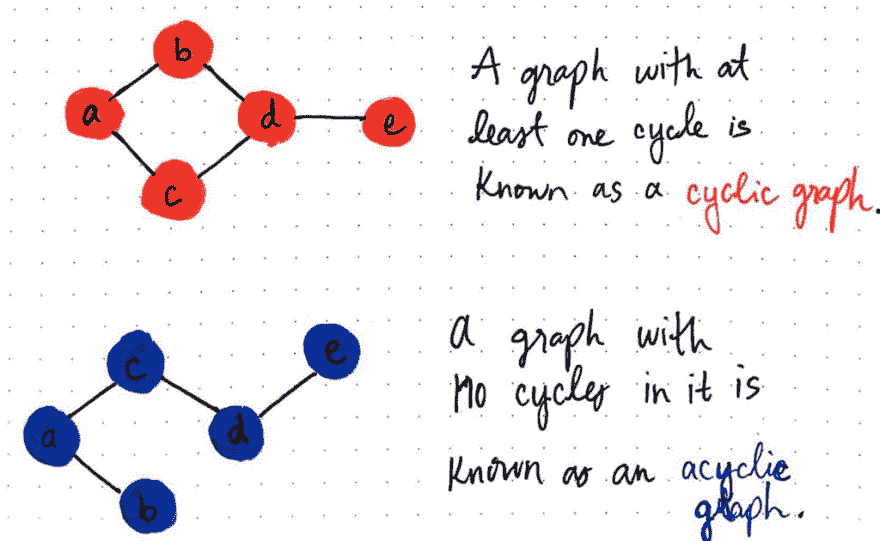 b
a
d
e
c
A graph with at
least one cycle is
Known as a cyclic graph.
e
c
a
d
b
a graph with
no cycles in it is
Known as an acyclic
graph.